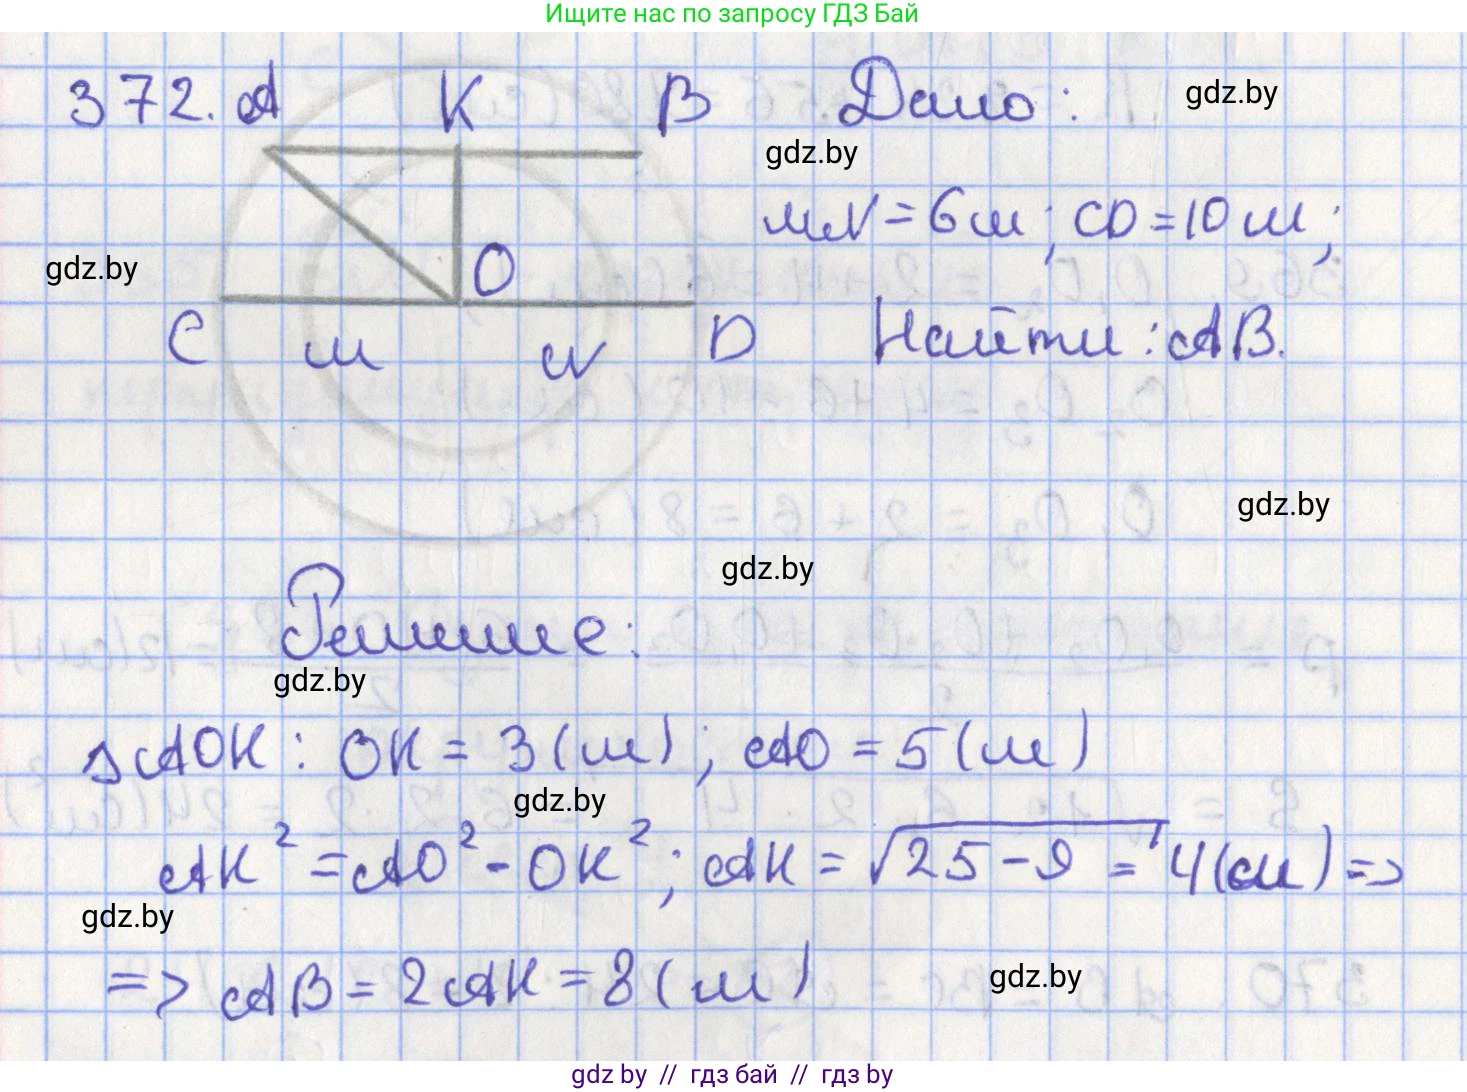 Ищите нас по запросу ГДЗ Бай
372. A K B Дано:
gdz.by
gdz.by
MN = 6 см; CD = 10 см;
gdz.by
O
C M N D Найти: AB.
gdz.by
gdz.by
Решение:
gdz.by
△AOK: OK = 3 (см); AO = 5 (см)
gdz.by
AK² = AO² - OK²; AK = √25 - 9 = 4 (см) =>
gdz.by
=> AB = 2AK = 8 (см)
gdz.by
gdz by // гдз бай // гдз by